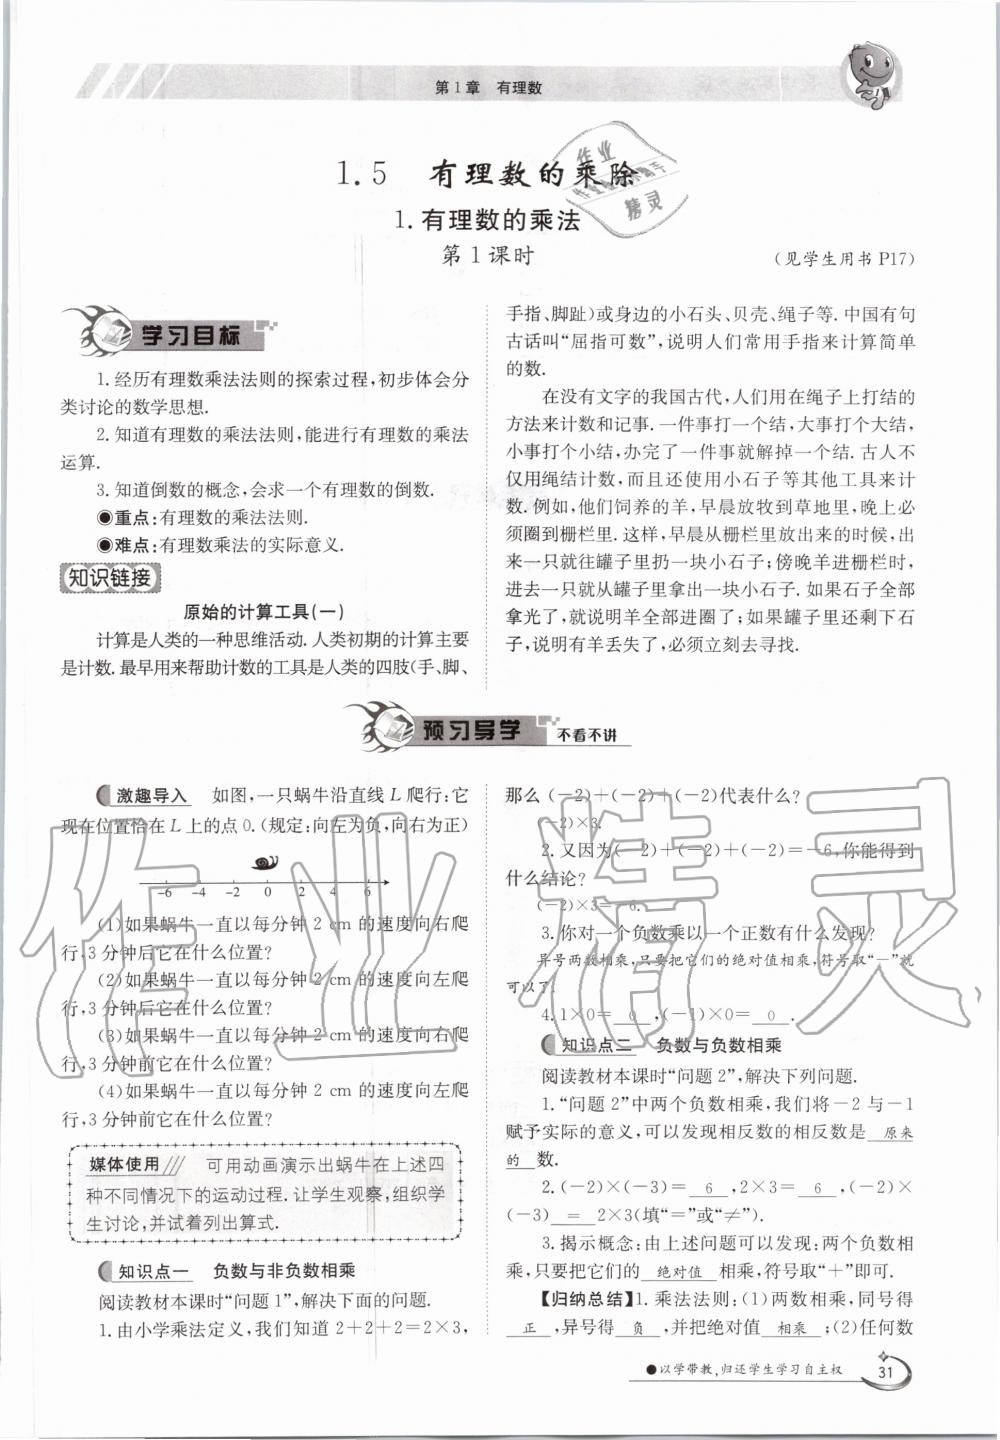 第1章 有理数
1.5 有理数的乘除
1.有理数的乘法
第1课时
(见学生用书 P17)
学习目标
1.经历有理数乘法法则的探索过程,初步体会分
类讨论的数学思想.
2.知道有理数的乘法法则,能进行有理数的乘法
运算.
3.知道倒数的概念,会求一个有理数的倒数.
●重点:有理数的乘法法则.
●难点:有理数乘法的实际意义.
知识链接
原始的计算工具(一)
计算是人类的一种思维活动.人类初期的计算主要
是计数.最早用来帮助计数的工具是人类的四肢(手、脚、
手指、脚趾)或身边的小石头、贝壳、绳子等.中国有句
古话叫“屈指可数”,说明人们常用手指来计算简单
的数.
在没有文字的我国古代,人们用在绳子上打结的
方法来计数和记事.一件事打一个结,大事打个大结,
小事打个小结,办完了一件事就解掉一个结.古人不
仅用绳结计数,而且还使用小石子等其他工具来计
数.例如,他们饲养的羊,早晨放牧到草地里,晚上必
须圈到栅栏里.这样,早晨从栅栏里放出来的时候,出
来一只就往罐子里扔一块小石子;傍晚羊进栅栏时,
进去一只就从罐子里拿出一块小石子.如果石子全部
拿光了,就说明羊全部进圈了;如果罐子里还剩下石
子,说明有羊丢失了,必须立刻去寻找.
预习导学 不看不讲
激趣导入 如图,一只蜗牛沿直线L爬行:它
现在位置恰在L上的点0.(规定:向左为负,向右为正)
-6 -4 -2 0 2 4 6
(1)如果蜗牛一直以每分钟2 cm的速度向右爬
行,3分钟后它在什么位置?
(2)如果蜗牛一直以每分钟2 cm的速度向左爬
行,3分钟后它在什么位置?
(3)如果蜗牛一直以每分钟2 cm的速度向右爬
行,3分钟前它在什么位置?
(4)如果蜗牛一直以每分钟2 cm的速度向左爬
行,3分钟前它在什么位置?
媒体使用 可用动画演示出蜗牛在上述四
种不同情况下的运动过程.让学生观察,组织学
生讨论,并试着列出算式.
知识点一 负数与非负数相乘
阅读教材本课时“问题1”,解决下面的问题.
1.由小学乘法定义,我们知道2+2+2=2×3,
那么(-2)+(-2)+(-2)代表什么?
(-2)×3.
2.又因为(-2)+(-2)+(-2)=-6,你能得到
什么结论?
(-2)×3=-6.
3.你对一个负数乘以一个正数有什么发现?
异号两数相乘,只要把它们的绝对值相乘,符号取“-”就
可以了.
4.1×0= 0 ,(-1)×0= 0 .
知识点二 负数与负数相乘
阅读教材本课时“问题2”,解决下列问题.
1.“问题2”中两个负数相乘,我们将-2与-1
赋予实际的意义,可以发现相反数的相反数是 原来
的 数.
2.(-2)×(-3)= 6 ,2×3= 6 ,(-2)×
(-3) = 2×3(填“=”或“≠”).
3.揭示概念:由上述问题可以发现:两个负数相
乘,只要把它们的 绝对值 相乘,符号取“+”即可.
【归纳总结】1.乘法法则:(1)两数相乘,同号得
正 ,异号得 负 ,并把绝对值 相乘 ;(2)任何数
●以学带教,归还学生学习自主权
31
作业
精灵
作业精灵